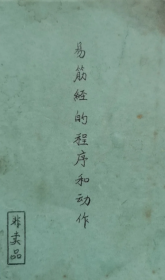 易筋经的程序和动作
非卖品